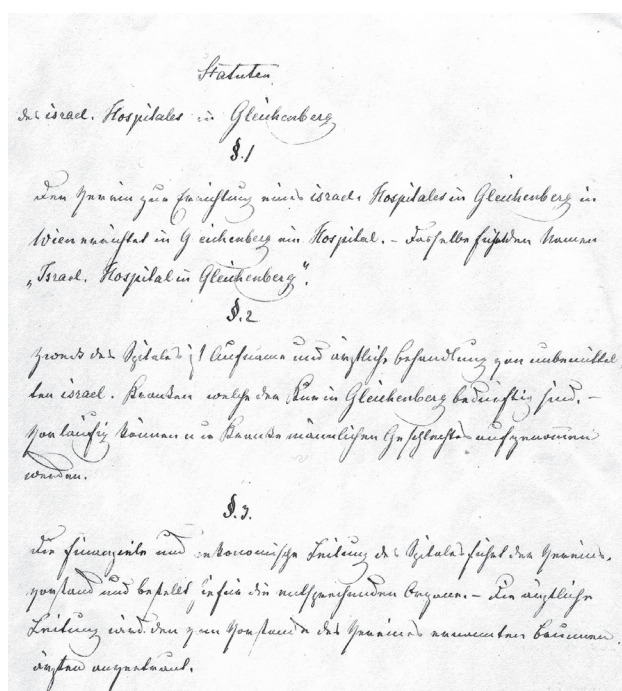 Statuten
des israel. Hospitales in Gleichenberg
§.1
Der Verein zur Errichtung eines israel. Hospitales in Gleichenberg in
Wien errichtet in Gleichenberg ein Hospital. – Dasselbe führt den Namen
„Israel. Hospital in Gleichenberg".
§.2
Zweck des Spitales ist Aufname und ärztliche Behandlung von unbemittel
ten israel. Kranken welche der Kur in Gleichenberg bedürftig sind. –
Vorläufig können nur Kranke männlichen Geschlechtes aufgenommen
werden.
§.3.
Die finanziele und oekonomische Leitung des Spitales führt der Vereins-
vorstand und bestellt hiefür die entsprechenden Organe. – Die ärztliche
Leitung wird den vom Vorstande des Vereines ernannten Brunnen
ärzten anvertraut.